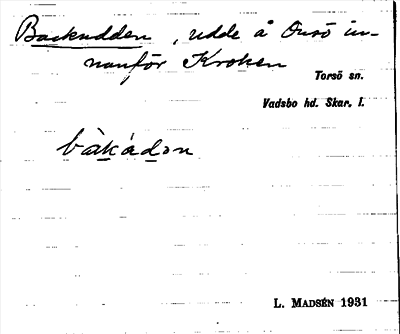 Backudden, udde å Onsö in-
nanför Kroken
Torsö sn.
Vadsbo hd. Skar. l.
bàkádən
L. MADSÉN 1931